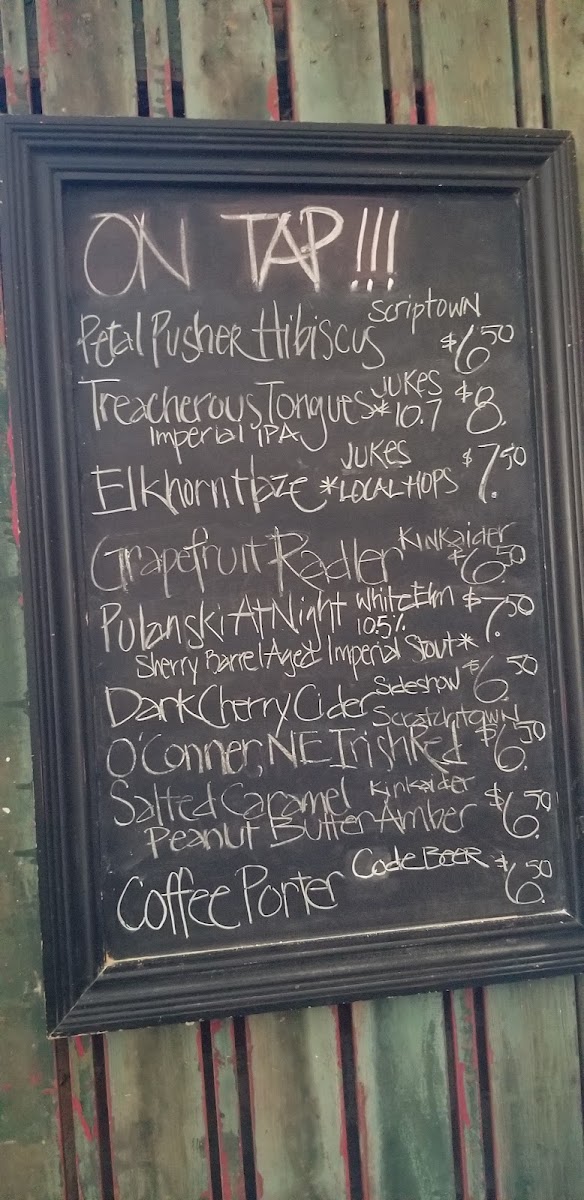 ON TAP!!!
Petal Pusher Hibiscus Scriptown $6.50
Treacherous Tongues* JUKES 10.7 $8.
Imperial IPA
Elkhorn Haze *LOCAL HOPS JUKES $7.50
Grapefruit Radler Kinkaider $6.50
Pulanski At Night White Elm 10.5% $7.50
Sherry Barrel Aged Imperial Stout*
Dark Cherry Cider Sideshow $6.50
O'Conner NE Irish Red Scratchtown $6.50
Salted Caramel Kinkaider $6.50
Peanut Butter Amber
Coffee Porter Code Beer $6.50